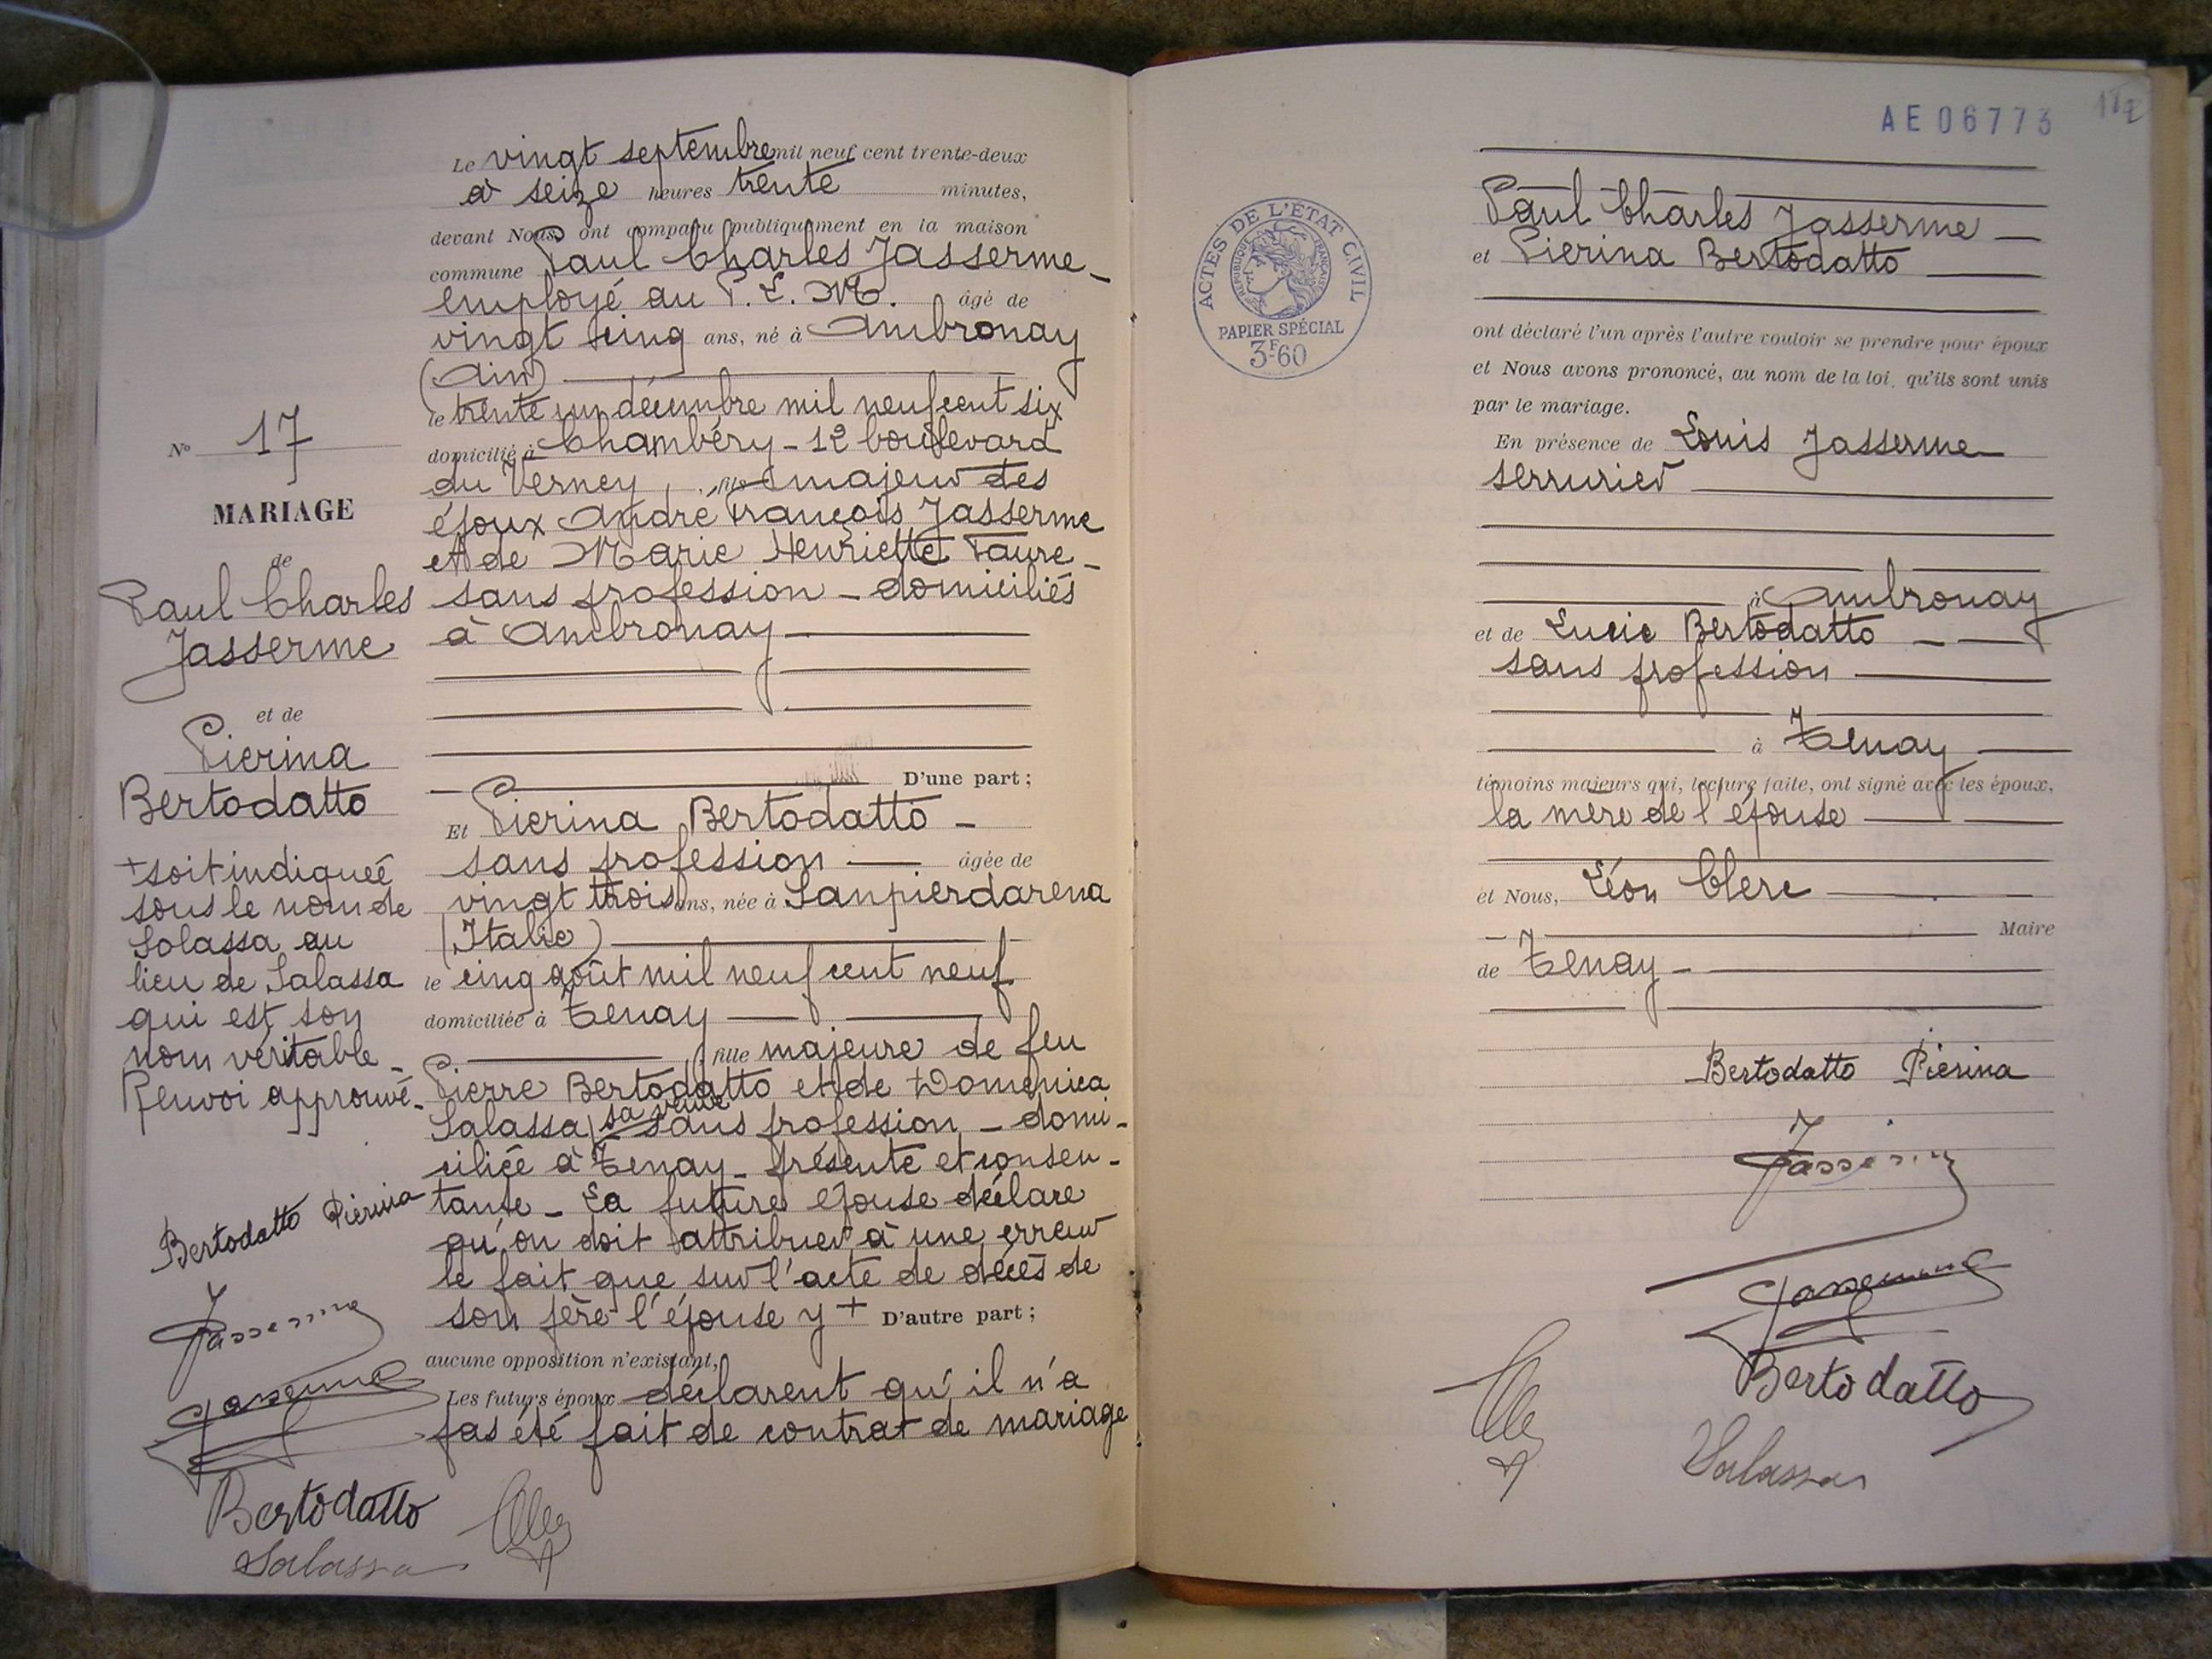 Le vingt septembre mil neuf cent trente-deux
à seize heures trente minutes,
devant Nous ont comparu publiquement en la maison
commune Paul Charles Jasserme -
employé au P. L. M. âgé de
vingt cinq ans, né à Ambronay
(Ain)
le trente un décembre mil neuf cent six
domicilié à Chambéry - 12 boulevard
du Verney, fils majeur des
époux André François Jasserme
et de Marie Henriette Faure -
sans profession - domiciliés
à Ambronay
D'une part ;
Et Pierina Bertodatto -
sans profession — âgée de
vingt trois ans, née à Sanpierdarena
(Italie)
le cinq août mil neuf cent neuf
domiciliée à Tenay
fille majeure de feu
Pierre Bertodatto et de Domenica
Salassa, sa veuve sans profession - domi-
ciliée à Tenay - présente et consen-
tante - La future épouse déclare
qu'on doit attribuer à une erreur
le fait que sur l'acte de décès de
son père l'épouse y + D'autre part ;
aucune opposition n'existant,
Les futurs époux déclarent qu'il n'a
pas été fait de contrat de mariage
N° 17
MARIAGE
de
Paul Charles
Jasserme
et de
Pierina
Bertodatto
+ soit indiquée
sous le nom de
Solassa au
lieu de Salassa
qui est son
nom véritable -
Renvoi approuvé -
Bertodatto Pierina
Jasserme
Jasserme
Bertodatto
Salassa
AE 06773
ACTES DE L'ÉTAT CIVIL
RÉPUBLIQUE FRANÇAISE
PAPIER SPÉCIAL
3F60
Paul Charles Jasserme —
et Pierina Bertodatto
ont déclaré l'un après l'autre vouloir se prendre pour époux
et Nous avons prononcé, au nom de la loi, qu'ils sont unis
par le mariage.
En présence de Louis Jasserme
serrurier
à Ambronay
et de Lucie Bertodatto
sans profession
à Tenay
témoins majeurs qui, lecture faite, ont signé avec les époux,
la mère de l'épouse
et Nous, Léon Clerc
Maire
de Tenay -
Bertodatto Pierina
Jasserme
Jasserme
Bertodatto
Salassa